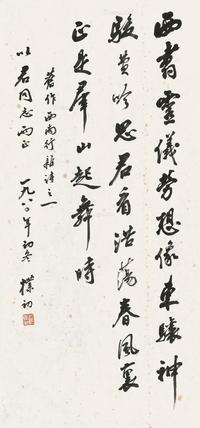 西看灵仪劳想像东骧神
骏费吟思君看浩荡春风里
正是群山起舞时
旧作西南行杂诗之一
以君同志两正
一九八〇年初冬 朴初